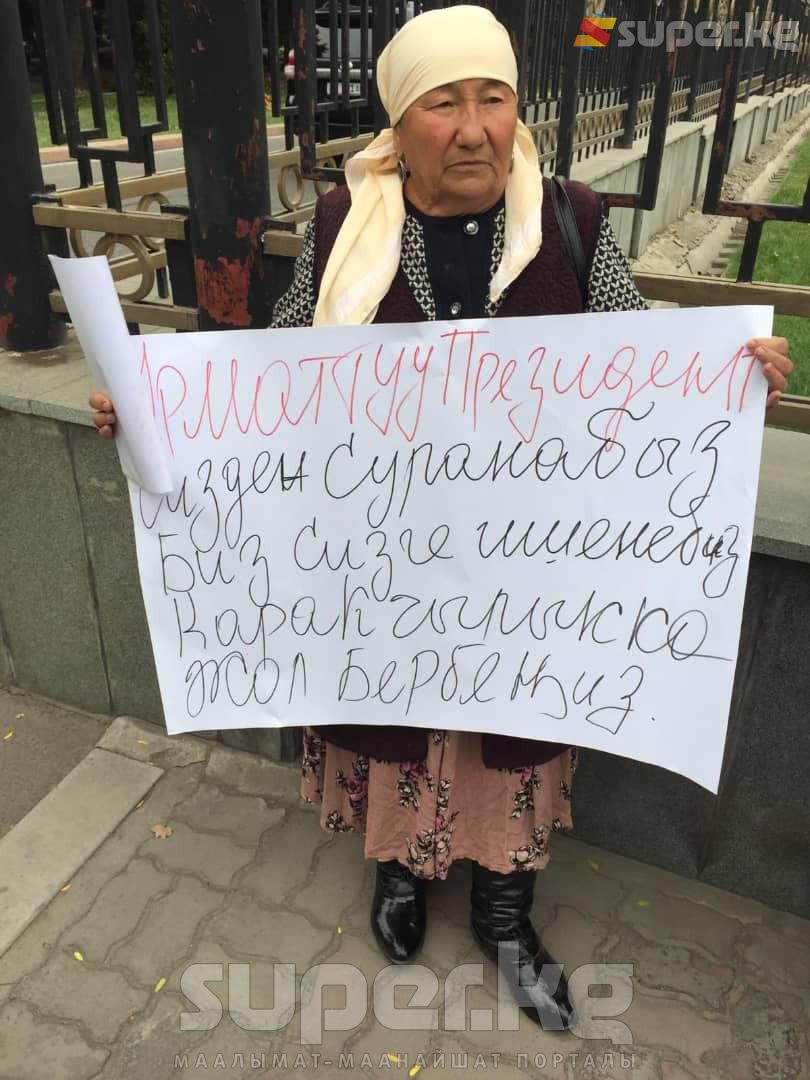 super.kg
Урматтуу Президент
Сизден Суранабыз
Биз Сизге ишенебиз
Каракчылыкка
жол Бербеңиз.
super.kg
МААЛЫМАТ-МААНАЙШАТ ПОРТАЛЫ